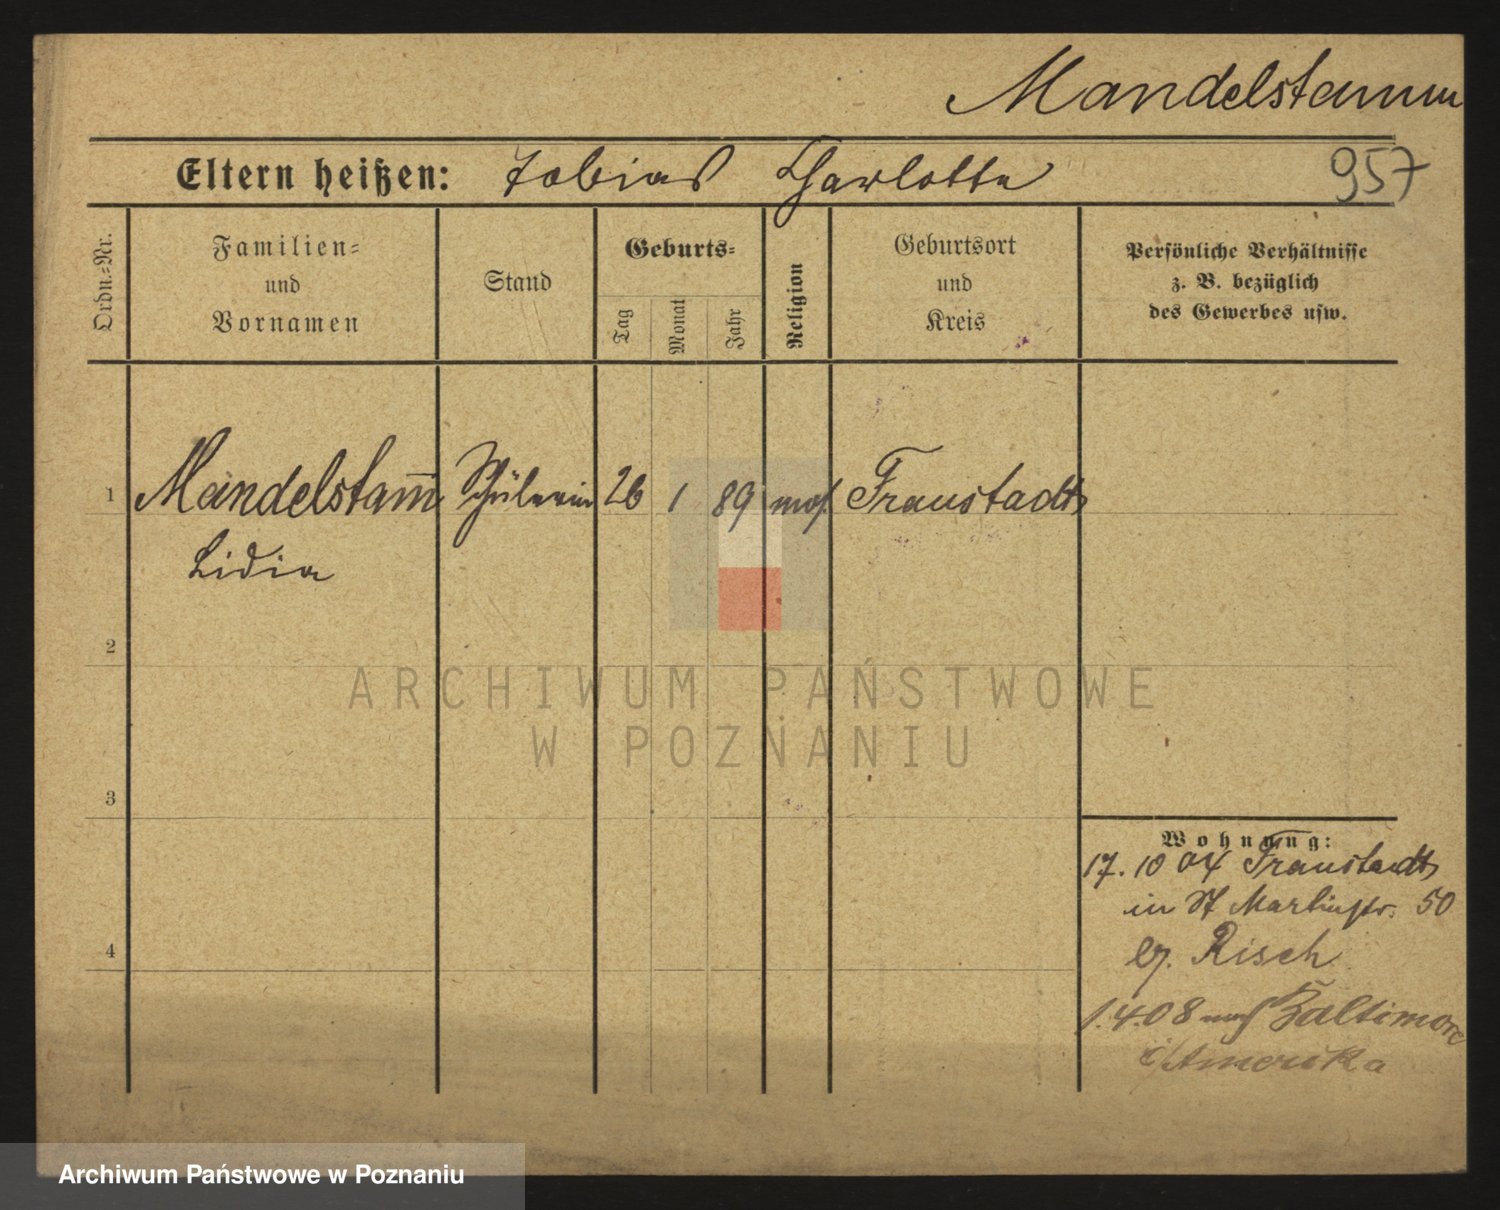 Mandelstamm
Eltern heißen: Tobias Charlotte 957
Ordn.=Nr.
Familien=
und
Vornamen
Stand
Geburts=
Tag
Monat
Jahr
Religion
Geburtsort
und
Kreis
Persönliche Verhältnisse
z. B. bezüglich
des Gewerbes usw.
1 Mandelstam̄ Schülerin 26 1 89 mos. Fraustadt
Lidia
2
3
4
Wohnung:
17. 10 04 Fraustadt
in St Martinstr. 50
bg. Risch
1.4.08 nach Baltimore
i/Amerika
ARCHIWUM PAŃSTWOWE
W POZNANIU
Archiwum Państwowe w Poznaniu